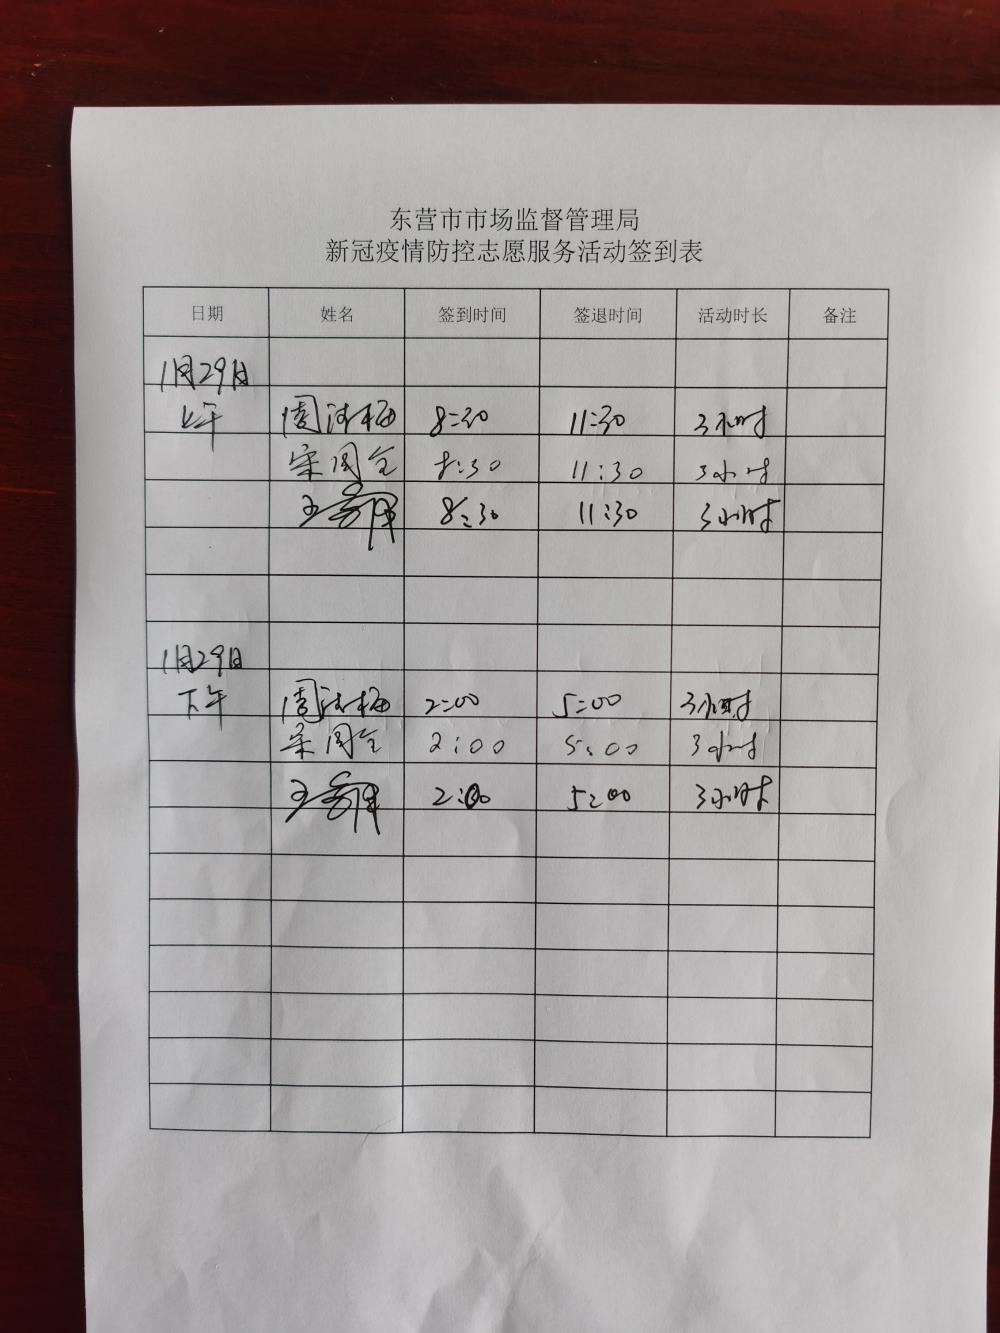 东营市市场监督管理局
新冠疫情防控志愿服务活动签到表
日期 姓名 签到时间 签退时间 活动时长 备注
1月29日
上午 周洪梅 8:30 11:30 3小时
宋周全 8:30 11:30 3小时
王 8:30 11:30 3小时
1月29日
下午 周洪梅 2:00 5:00 3小时
宋周全 2:00 5:00 3小时
王 2:00 5:00 3小时